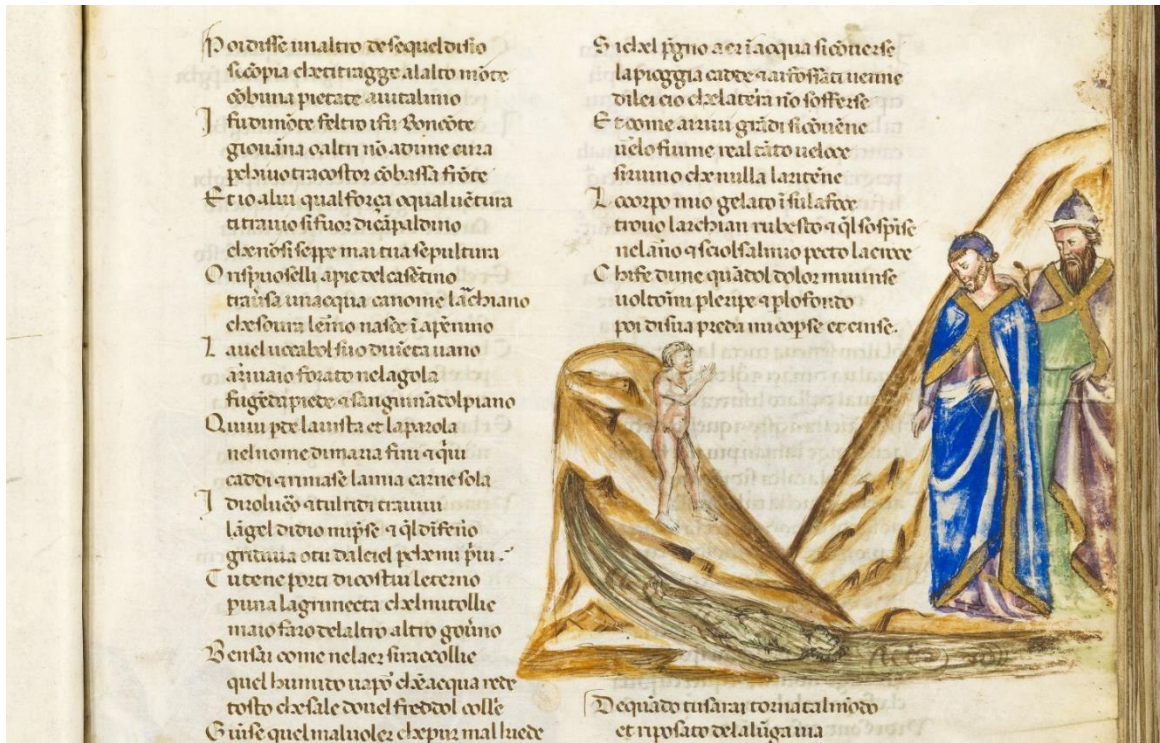 Poi disse unaltro de se quel disio
si cōpia che ti tragge alalto mōte
cō buna pietate aiuta l mio
I fui di mōte feltro i fu Boncōte
giouāna o altri nō a di me cura
per chio uo tra costor cō bassa frōte
Et io a lui qual força o qual uētura
ti trauio si fuor di cāpaldino
che nō si seppe mai tua sepultura
O rispuoselli a pie del casētino
trauersa unacqua ca nome larchiano
che soura lermo nasce ī apēnino
La uel uocabol suo diuēta uano
arriuaio forato ne la gola
fugēdo a piede e sanguinādol piano
Quiui pde la uista et la parola
nel nome di maria fini e qui
caddi e rimase la mia carne sola
I diro l uero e tu l ridi tra uiui
lāgel di dio mi pse e ql dīferno
gridaua o tu dal ciel pche mi priui
Tu tene porti di costui leterno
p una lagrimetta chel mi tollie
ma io faro de laltro altro gouerno
Ben sai come ne laer si raccollie
quel humido uapor che ī acqua rede
tosto che sale doue l freddol collie
Giūse quel mal uoler che pur mal chiede
Si chel pgno aer ī acqua si cōuerse
la pioggia cadde e ai fossati uenne
di lei cio che la terra nō sofferse
Et come a riui grādi si cōuēne
uer lo fiume real tāto ueloce
si ruino che nulla la ritēne
Lo corpo mio gelato ī su la foce
trouo larchian rubesto e ql sospise
ne larno e sciolse al mio pecto la croce
Chi fe di me quādol dolor mi uinse
uoltōmi p le ripe e p lo fondo
poi di sua preda mi copse e cinse.
De quādo tu sarai tornato al mōdo
et riposato de la lūga uia